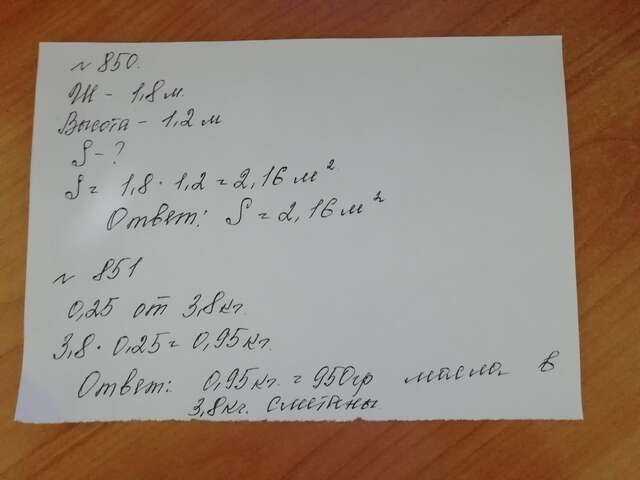 № 850.
Ш - 1,8 м.
Высота - 1,2 м
S - ?
S = 1,8 · 1,2 = 2,16 м²
Ответ: S = 2,16 м²
№ 851
0,25 от 3,8 кг.
3,8 · 0,25 = 0,95 кг.
Ответ: 0,95 кг. = 950 гр масла в
3,8 кг. сметаны.